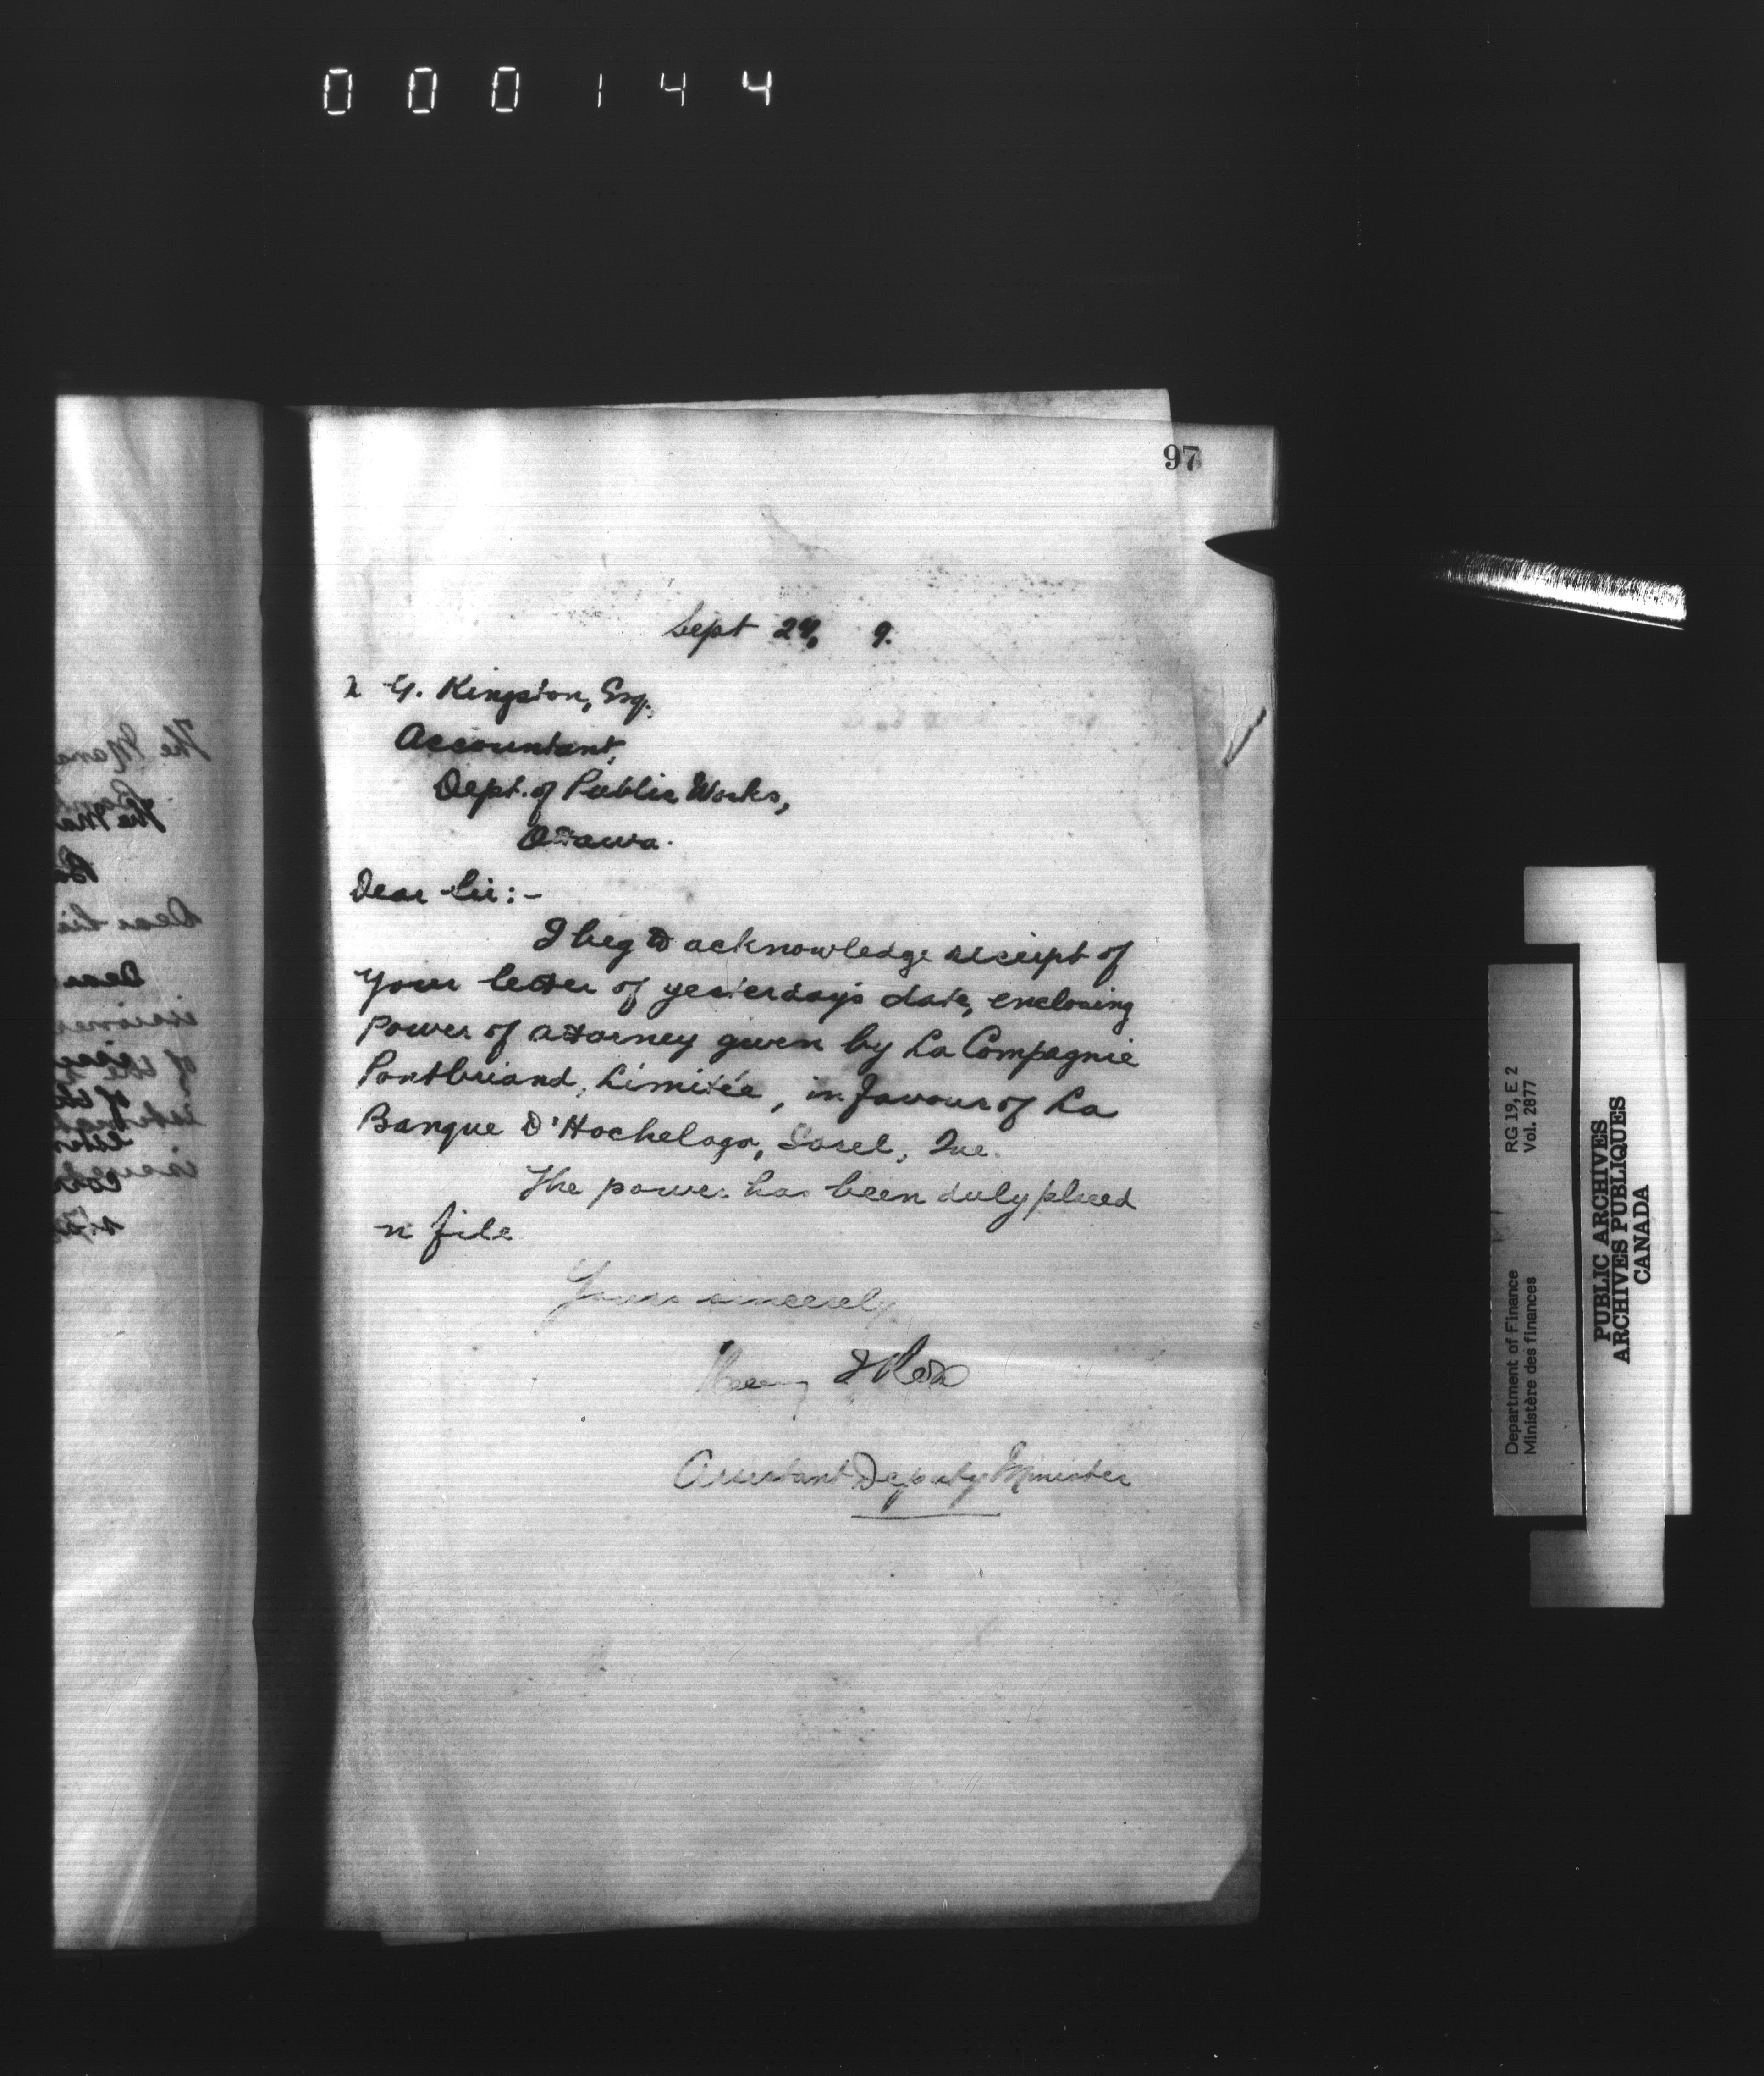 000144
97
Sept 29, 9.
G. Kingston, Esq.,
Accountant,
Dept. of Public Works,
Ottawa.
Dear Sir:-
I beg to acknowledge receipt of
your letter of yesterday's date, enclosing
Power of attorney given by La Compagnie
Pontbriand, Limitée, in favour of La
Banque D'Hochelaga, Sorel, Que.
The power has been duly placed
n file
Yours sincerely,
Assistant Deputy Minister
The Mana
The Ma
Dear Sir
Dear
Department of Finance RG 19, E 2
Ministère des finances Vol. 2877
PUBLIC ARCHIVES
ARCHIVES PUBLIQUES
CANADA